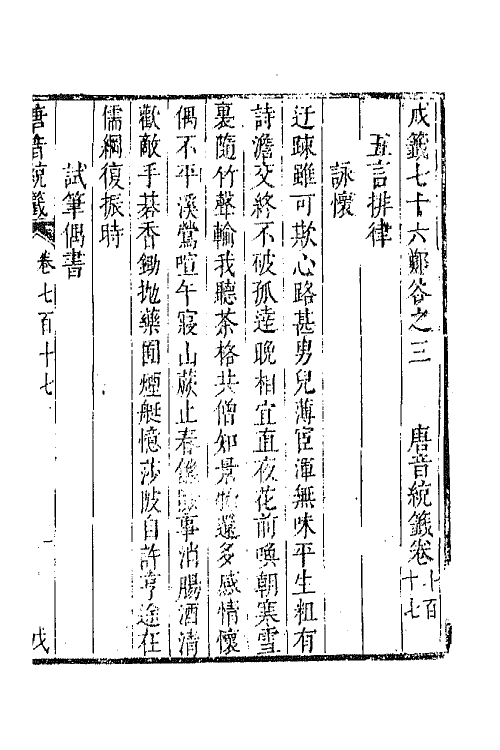 戊籤七十六鄭谷之三　唐音統籤卷七百十七
五言排律
詠懷
迂疎雖可欺心路甚男兒薄宦渾無味平生粗有
詩澹交終不破孤達晚相宜直夜花前喚朝寒雪
裏隨竹聲輸我聽茶格共僧知景物還多感情懷
偶不平溪鶯喧午寢山蕨止春饑事消腸酒清
歡敵手碁香鋤抛藥圃煙艇憶莎陂自許亨途在
儒綱復振時
試筆偶書
唐音統籤
卷七百十七
一
戊